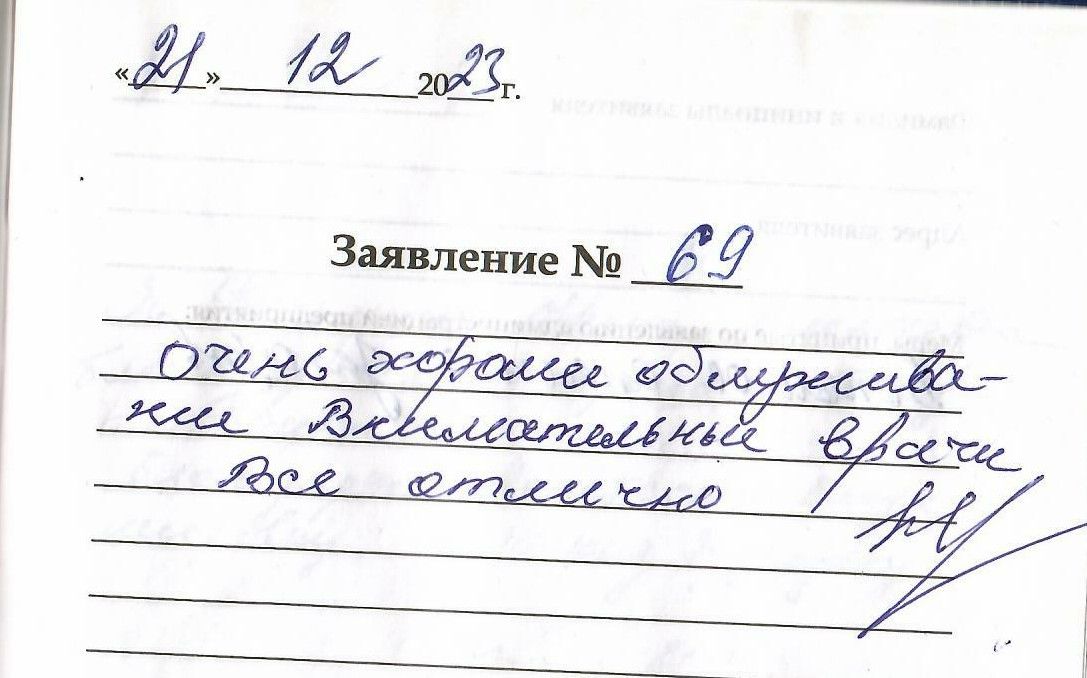 «21» 12 2023 г.
Заявление № 69
Очень хороши обслужива-
ние Внимательные врачи
Все отлично